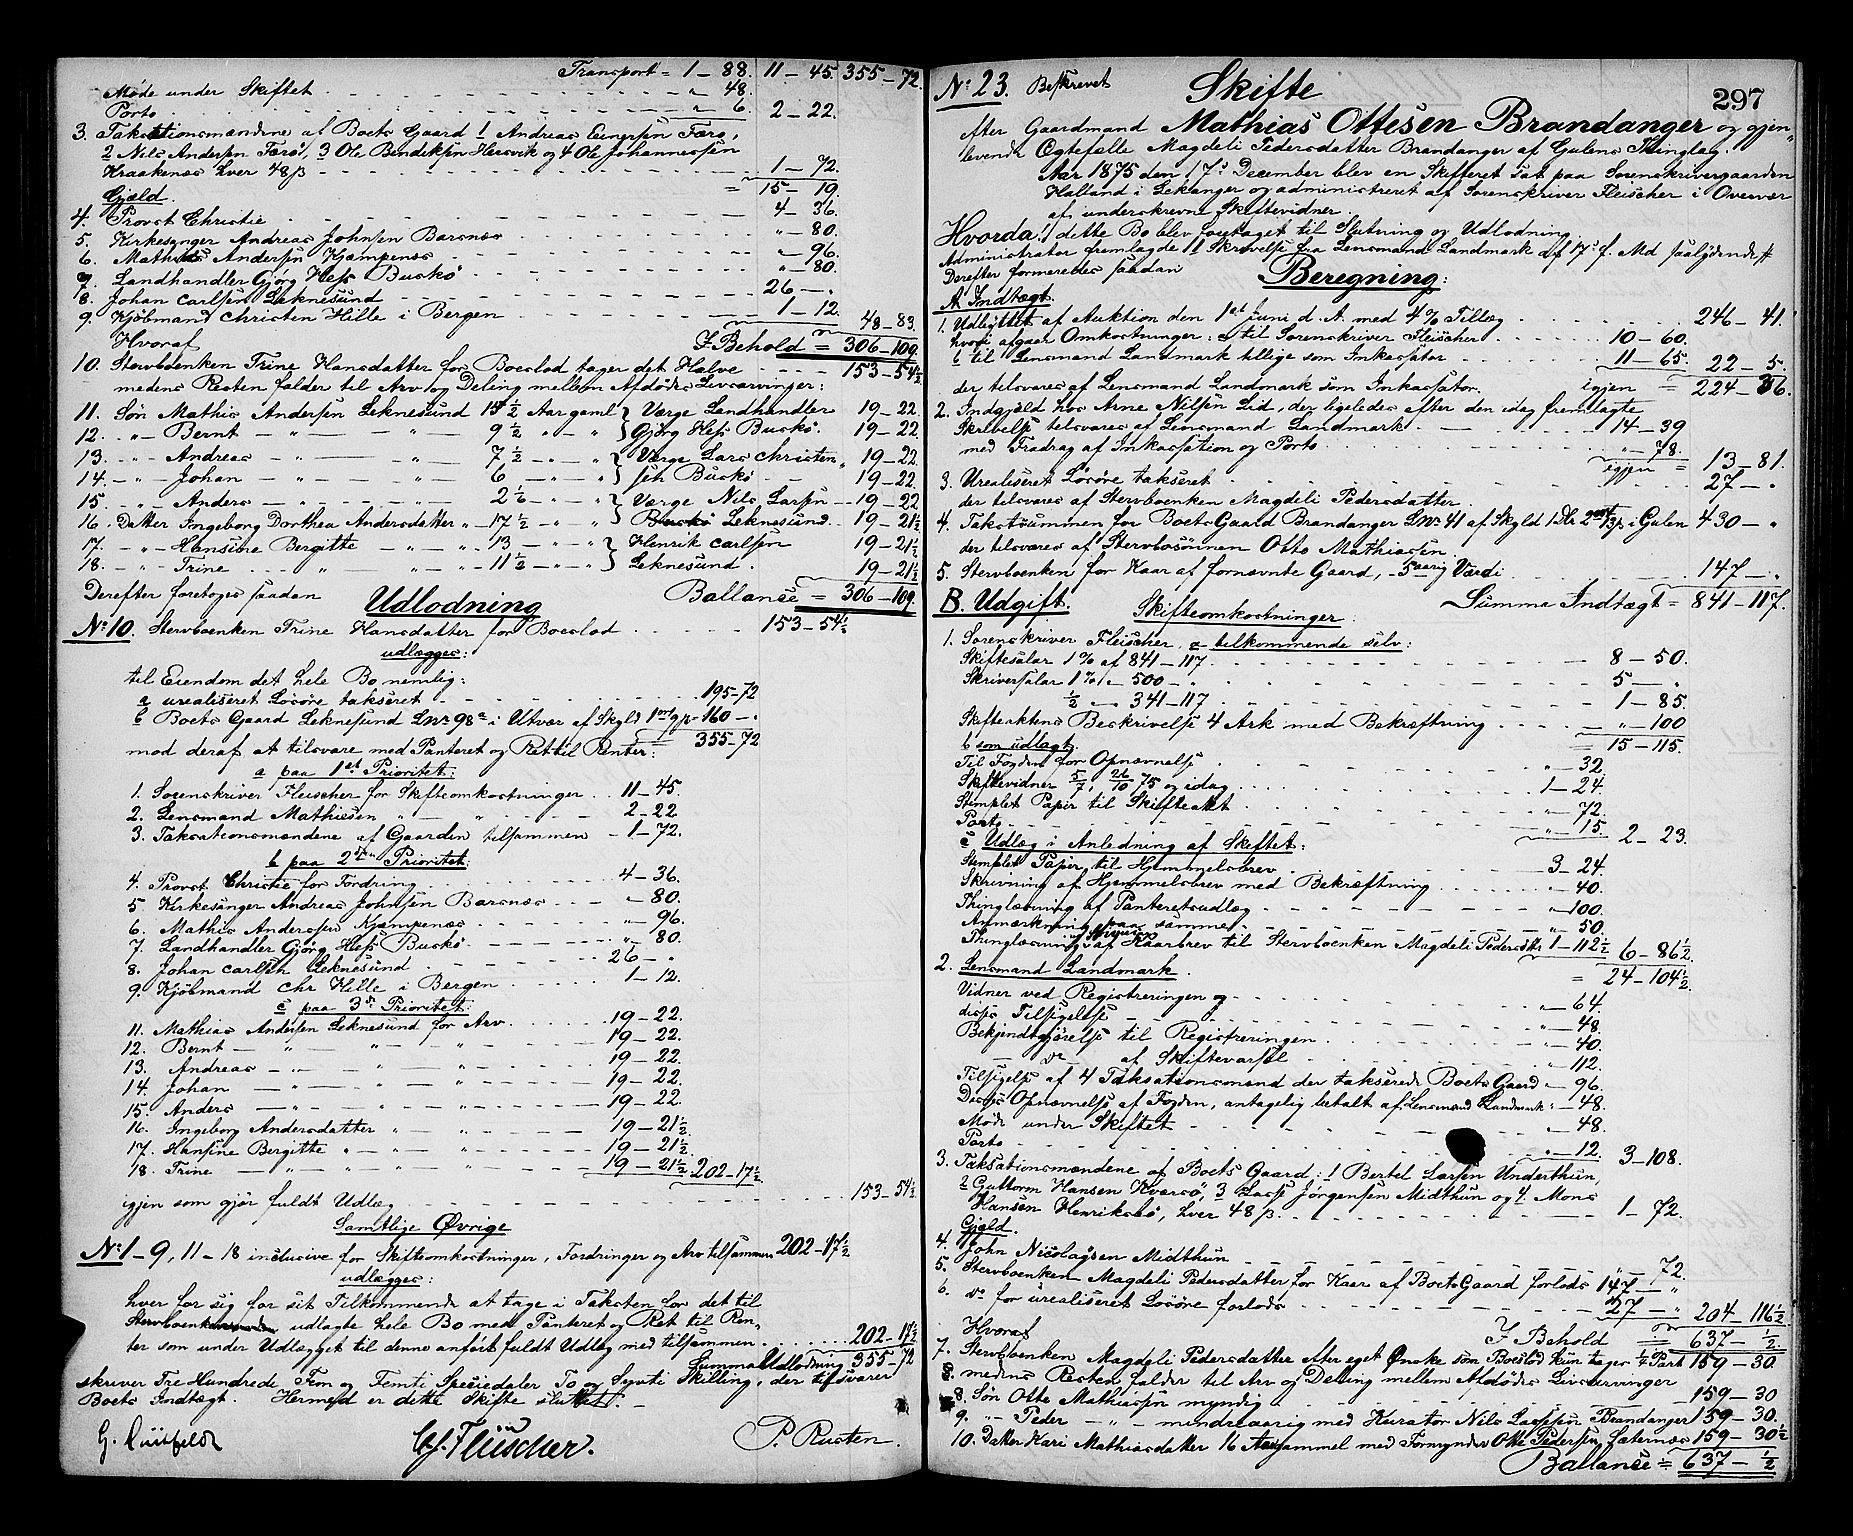 Transport = 1 – 88. 11 – 45. 355 – 72.
Møde under Skiftet „ 48.
Porto „ 6. 2 – 22.
3. Takstationsmændene af Boets Gaard 1 Andreas Einersen Færø,
2 Nils Andersen Færø, 3 Ole Bendiksen Hersvik og 4 Ole Johannessen
Kraakenes hver 48 β 1 – 72.
= 15 – 19.
Gjæld.
4. Provst Christie 4 – 36.
5. Kirkesanger Andreas Johnsen Barsnæs „ – 80.
6. Mathis Andersen Kjempenæs „ – 96.
7. Landhandler Gjørg Hess Buskø „ – 80.
8. Johan Carlsen Leknesund 26 – „
9. Kjøbmand Christen Hille i Bergen 1 – 12. 48 – 83.
Hvoraf I Behold = 306 – 109.
10. Stervboenken Trine Hansdatter for Boeslod tager det Halve 153 – 54½
medens Resten falder til Arv og Deling mellem Afdødes Livsarvinger:
11. Søn Mathis Andersen Leknesund 15½ Aar gaml } Værge Landhandler 19 – 22.
12. „ Bernt – „ – „ – 9½ „ – „ } Gjørg Hess Buskø. 19 – 22.
13. „ Andreas – „ – „ – 7½ „ – „ } Værge Lars Christen„ 19 – 22.
14. – „ – Johan – „ – „ – 6 „ – „ } sen Buskø 19 – 22.
15. – „ – Anders – „ – „ – 2½ „ – „ } Værge Nils Larsen 19 – 22
16. Datter Ingeborg Dorthea Andersdatter „ – 17½ „ – „ } Buskø Leknesund. 19 – 21½
17. – „ – Hansine Bergitte – „ – „ – 13 – „ – „ } Henrik Carlsen 19 – 21½
18. – „ – Trine – „ – „ – 11½ – „ – „ } Leknesund. 19 – 21½
Derefter foretoges saadan Ballance = 306 – 109.
Udlodning
No 10. Stervboenken Trine Hansdatter for Boeslod 153 – 54½
udlægges:
til Eiendom det hele Bo nemlig:
a urealiseret Løsøre takseret 195 – 72
b Boets Gaard Leknesund LNr 98a i Utvær af Skyld 1 ort 9 β – 160 – „
mod deraf at tilsvare med Panteret og Ret til Renter: = 355 – 72
a paa 1st Prioritet:
1. Sorenskriver Fleischer for Skifteomkostninger 11 – 45.
2. Lensmand Mathiesen „ – „ 2 – 22
3. Taksationsmændene af Gaarden tilsammen – 1 – 72.
b paa 2den Prioritet:
4. Provst Christie for Fordring 4 – 36.
5. Kirkesanger Andreas Johnsen Barsnæs – 80.
6. Mathis Anderssen Kjempenæs „ – 96.
7. Landhandler Gjørg Hess Buskø „ – 80.
8. Johan Carlsen Leknesund 26 – „
9. Kjøbmand Chr Hille i Bergen 1 – 12.
c paa 3die Prioritet:
11. Mathias Andersen Leknesund for Arv 19 – 22.
12. Bernt – „ – „ – „ 19 – 22.
13. Andreas – „ – „ – „ 19 – 22.
14. Johan – „ – „ – „ 19 – 22.
15. Anders – „ – „ – „ 19 – 22.
16. Ingeborg Andersdatter „ – „ 19 – 21½
17. Hansine Bergitte „ – „ – „ 19 – 21½
18. Trine – „ – „ – „ 19 – 21½ 202 – 17½
igjen som gjør fuldt Udlæg 153 – 54½
Samtlige Øvrige
No 1 – 9, 11 – 18 inclusive for Skifteomkostninger, Fordringer og Arv tilsammen 202 – 17½
udlægges:
hver for sig for sit Tilkommende at tage i Taksten for det til
Stervboenken udlagte hele Bo med Panteret og Ret til Ren„
ter som under Udlægget til denne anført fuldt Udlæg med tilsammen 202 – 17½
Summa Udlodning 355 – 72
skriver Tre Hundrede, Fem og Femti Speciedaler To og Sytti Skilling, der tilsvarer
Boets Indtægt. Hermed er dette Skifte sluttet.
G. Huitfeldt CJ. Fleischer. P. Rusten.
297
No 23. Beskrevet Skifte
efter Gaardmand Mathias Ottesen Brandanger og gjen„
levende Egtefælle Magdeli Pedersdatter Brandanger af Gulens Thinglag.
Aar 1875 den 17de December blev en Skifteret sat paa Sorenskrivergaarden
Husland i Lekanger og administreret af Sorenskriver Fleischer i Overvær
af underskrevne Skiftevidner.
Hvorda! I dette Bo blev foretaget til Slutning og Udlodning.
Administrator fremlagde 11 Skrivelse fra Lensmand Landmark af 17de f. Md saalydende #
Derefter formeredes saadan Beregning:
A. Indtægt.
1. Udbyttet af Auktion den 1st Juni d. A. med 4 % Tillæg 246 – 41.
hvori afgaar Omkostninger: a til Sorenskriver Fleischer 10 – 60.
b til Lensmand Landmark tillige som Inkassator 11 – 65. 22 – 5.
der tilsvares af Lensmand Landmark som Inkassator. igjen = 224 – 36.
2. Indgjæld hos Arne Nilsen Lid, der ligeledes efter den idag fremlagte
Skrivelse tilsvares af Lensmand Landmark 14 – 39
med Fradrag af Inkassation og Porto „ – 78.
igjen = 13 – 81.
3. Urealiseret Løsøre takseret 27 – „
der tilsvares af Stervboenken Magdeli Pedersdatter.
4. Takstsummen for Boets Gaard Brandanger LNr 41 af Skyld 1 Dlr 2 ort 13 β i Gulen 430 – „
der tilsvares af Stervbosønnen Otto Mathiassen.
5. Stervboenken for Kaar af fornævnte Gaard, 5 aarig Værdi 147 – „
B. Udgift. Summa Indtægt = 841 – 117.
Skifteomkostninger:
1. Sorenskriver Fleischer, a tilkommende selv:
Skiftesalær 1 % af 841 – 117 8 – 50.
Skriversalær 1 % – 500 „ 5 – „
½ – „ 341 – 117 1 – 85.
Skifteaktens Beskrivelse 4 Ark med Bekræftning „ – 100
= 15 – 115.
b som udlagt
Til Fogden for Opnævnelse „ – 32.
Skiftevidner 5/7, 26/10 75 og idag 1 – 24.
Stemplet Papir til Skifteakt „ – 72.
Porto „ – 15. 2 – 23.
c Udlæg i Anledning af Skiftet:
Stemplet Papir til Hjemmelsbrev 3 – 24.
Skrivning af Hjemmelsbrev med Bekræftning „ – 40.
Thinglæsning af Panteretsudlæg „ – 100.
Anmærkning paa samme „ – 50.
Thinglæsning af Kaarbrev til Stervboenken Magdeli Pedersdtr 1 – 112½ 6 – 86½
= 24 – 104½
2. Lensmand Landmark.
Vidner ved Registreringen og „ – 64.
disses Tilsigelse „ – 48.
Bekjendtgjørelse til Registreringen „ – 40.
– do af Skiftevarsel „ – 112.
Tilsigelse af 4 Taksationsmænd der takserede Boets Gaard „ – 96.
Disses Opnævnelse af Fogden, antagelig betalt af Lensmand Landmark „ – 48.
Møde under Skiftet „ – 48.
Porto „ – 12. 3 – 108.
3. Taksationsmændene af Boets Gaard: 1 Bertel Larsen Underthun,
2 Guttorm Hansen Kversø, 3 Lasse Jørgensen Midthun og 4. Mons
Hansen Henriksbø, hver 48 β 1 – 72.
Gjæld.
4. John Nicolaysen Midthun „ – 72.
5. Stervboenken Magdeli Pedersdatter for Kaar af Boets Gaard forlods 147 – „
6. do for urealiseret Løsøre forlods 27 – „ 204 – 116½
Hvoraf I Behold = 637 – ½
7. Stervboenken Magdeli Pedersdatter efter eget Ønske som Boeslod kun tager ¼ Part 159 – 30.
medens Resten falder til Arv og Deling mellem Afdødes Livsarvinger
8. Søn Otto Mathiassen myndig 159 – 30
9. „ Peder – „ – mindreaarig med Kurator Nils Lassesen Brandanger 159 – 30.
10. Datter Kari Mathiasdatter 16 Aar gammel med Formynder Otte Pedersen Sæternæs 159 – 30½
Ballance = 637 – ½